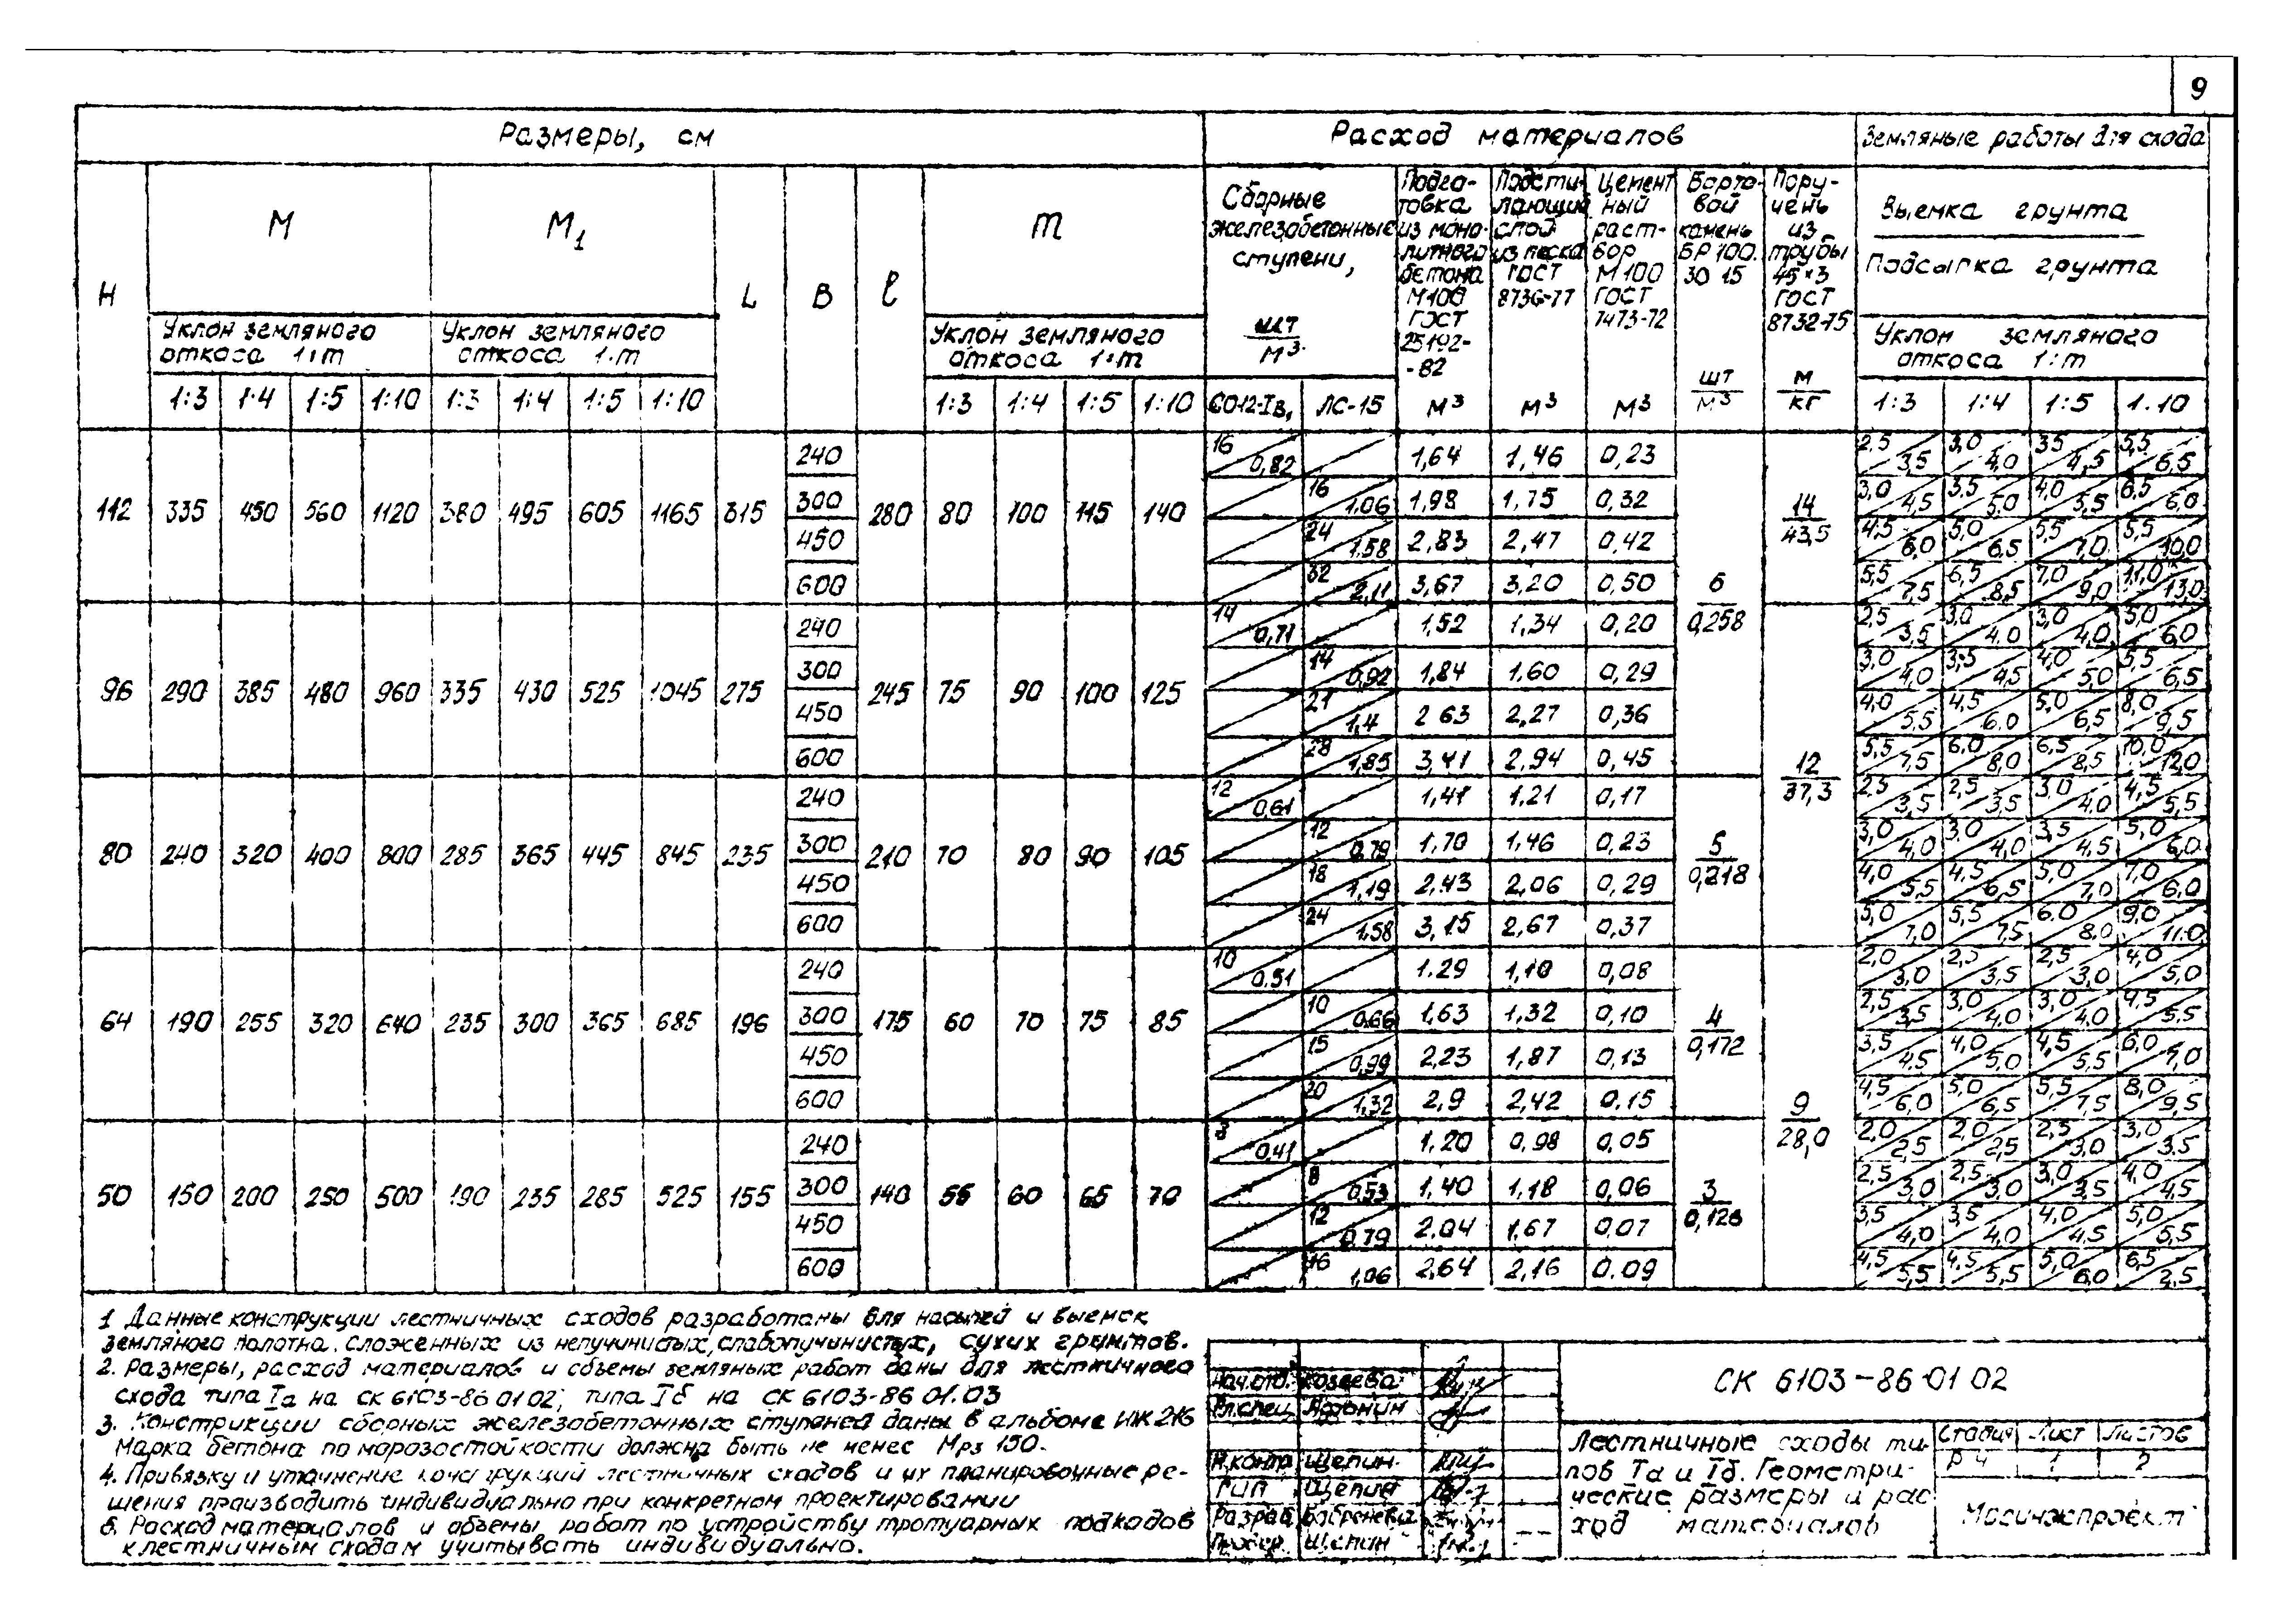 9
Размеры, см
Расход материалов
Земляные работы для схода
H
M
M1
L
B
ℓ
m
Сборные железобетонные ступени, шт/м3
Подготовка из монолитного бетона М100 ГОСТ 25192-82
Подстилающий слой из песка ГОСТ 8736-77
Цементный раствор М100 ГОСТ 7473-72
Бортовой камень БР 100.30 15 шт/м3
Поручень из трубы 45×3 ГОСТ 8732-75 м/кг
Выемка грунта
Подсыпка грунта
Уклон земляного откоса 1:m
Уклон земляного откоса 1:m
Уклон земляного откоса 1:m
Уклон земляного откоса 1:m
1:3 1:4 1:5 1:10 1:3 1:4 1:5 1:10 1:3 1:4 1:5 1:10 СО12-Iв, ЛС-15 м3 м3 м3 1:3 1:4 1:5 1.10
112 335 450 560 1120 380 495 605 1165 315 280 80 100 115 140 14/43,5
240 16/0,82 1,64 1,46 0,23 2,5/3,5 3,0/4,0 3,5/4,5 5,5/6,5
300 16/1,06 1,98 1,75 0,32 3,0/4,5 3,5/5,0 4,0/5,5 6,5/6,0
450 24/1,58 2,83 2,47 0,42 4,5/6,0 5,0/6,5 5,5/7,0 5,5/10,0
600 32/2,11 3,67 3,20 0,50 5,5/7,5 6,5/8,5 7,0/9,0 11,0/13,0
6/0,258
96 290 385 480 960 335 430 525 1045 275 245 75 90 100 125 12/37,3
240 14/0,71 1,52 1,34 0,20 2,5/3,5 3,0/4.0 3,0/4,0 5,0/6,0
300 14/0,92 1,84 1,60 0,29 3,0/4,0 3,5/4,5 4,0/5,0 5,5/6,5
450 21/1,4 2 63 2,27 0,36 4,0/5,5 4,5/6.0 5,0/6,5 8,0/9,5
600 28/1,85 3,41 2,94 0,45 5,5/7,5 6,0/8,0 6,5/8,5 10,0/12,0
80 240 320 400 800 285 365 445 845 235 210 70 80 90 105 5/0,218
240 12/0,61 1,41 1,21 0,17 2,5/3,5 2,5/3,5 3,0/4,0 4,5/5,5
300 12/0,79 1,70 1,46 0,23 3,0/4,0 3,0/4,0 3,5/4,5 5,0/6,0
450 18/1,19 2,43 2,06 0,29 4,0/5,5 4,5/6,5 5,0/7,0 7,0/6,0
600 24/1,58 3,15 2,67 0,37 5,0/7,0 5,5/7,5 6.0/8,0 9,0/11.0
64 190 255 320 640 235 300 365 685 196 175 60 70 75 85 4/0,172
240 10/0.51 1.29 1,10 0,08 2,0/3,0 2,5/3,5 2,5/3,0 4,0/5,0
300 10/0,66 1,63 1,32 0,10 2,5/3,5 3,0/4,0 3,0/4,0 4,5/5.5
450 15/0,99 2,23 1,87 0,13 3,5/4,5 4,0/5,0 4,5/5,5 6,0/7,0
600 20/1,32 2,9 2,42 0.15 4,5/6,0 5,0/6,5 5,5/7,5 8,0/9,5
9/28,0
50 150 200 250 500 190 235 285 525 155 140 55 60 65 70 3/0,126
240 8/0,41 1,20 0,98 0,05 2,0/2,5 2,0/2,5 2,5/3,0 3,0/3.5
300 8/0,53 1,40 1,18 0,06 2,5/3,0 2,5/3,0 3,0/3,5 4,0/4,5
450 12/0,79 2,04 1,67 0,07 3,5/4,0 3,5/4,0 4,0/4.5 5,0/5,5
600 16/1,06 2,64 2,16 0.09 4,5/5,5 4,5/5,5 5,0/6,0 6,5/2,5
1 Данные конструкции лестничных сходов разработаны для насыпей и выемок
земляного полотна. сложенных из непучинистых, слабопучинистых, сухих грунтов.
2. Размеры, расход материалов и объемы земляных работ даны для лестничного
схода типа Iа на СК 6103-86 01 02; типа Iб на СК 6103-86 01.03
3. Конструкции сборных железобетонных ступеней даны в альбоме ИЖ 216
Марка бетона по морозостойкости должна быть не менее Мрз 150.
4. Привязку и уточнение конструкций лестничных сходов и их планировочные ре-
шения производить индивидуально при конкретном проектировании
5. Расход материалов и объемы работ по устройству тротуарных подходов
к лестничным сходам учитывать индивидуально.
Нач.отд. Козеева
Гл.спец. Афонин
Н.контр Щепин
ГИП Щепин
Разраб
Провер. Щепин
СК 6103-86-01 02
Лестничные сходы ти-
пов Iа и Iб. Геометри-
ческие размеры и рас
ход материалов
Стадия Лист Листов
Р Ч 1 2
Мосинжпроект